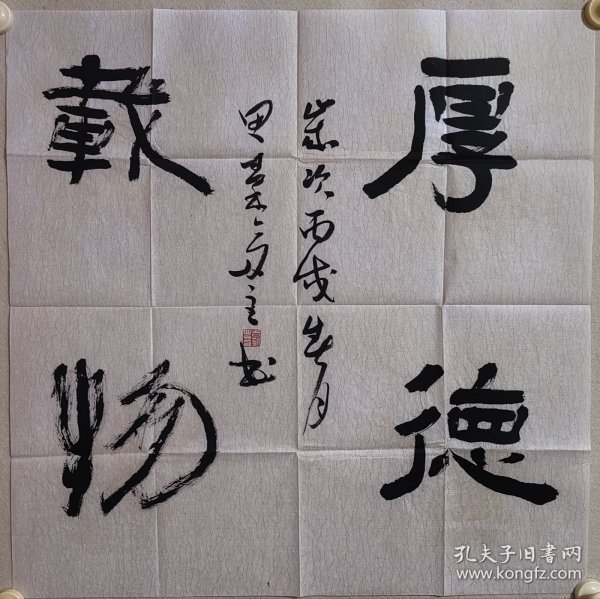 厚德
载物
岁次丙戌春月
书
孔夫子旧书网
www.kongfz.com